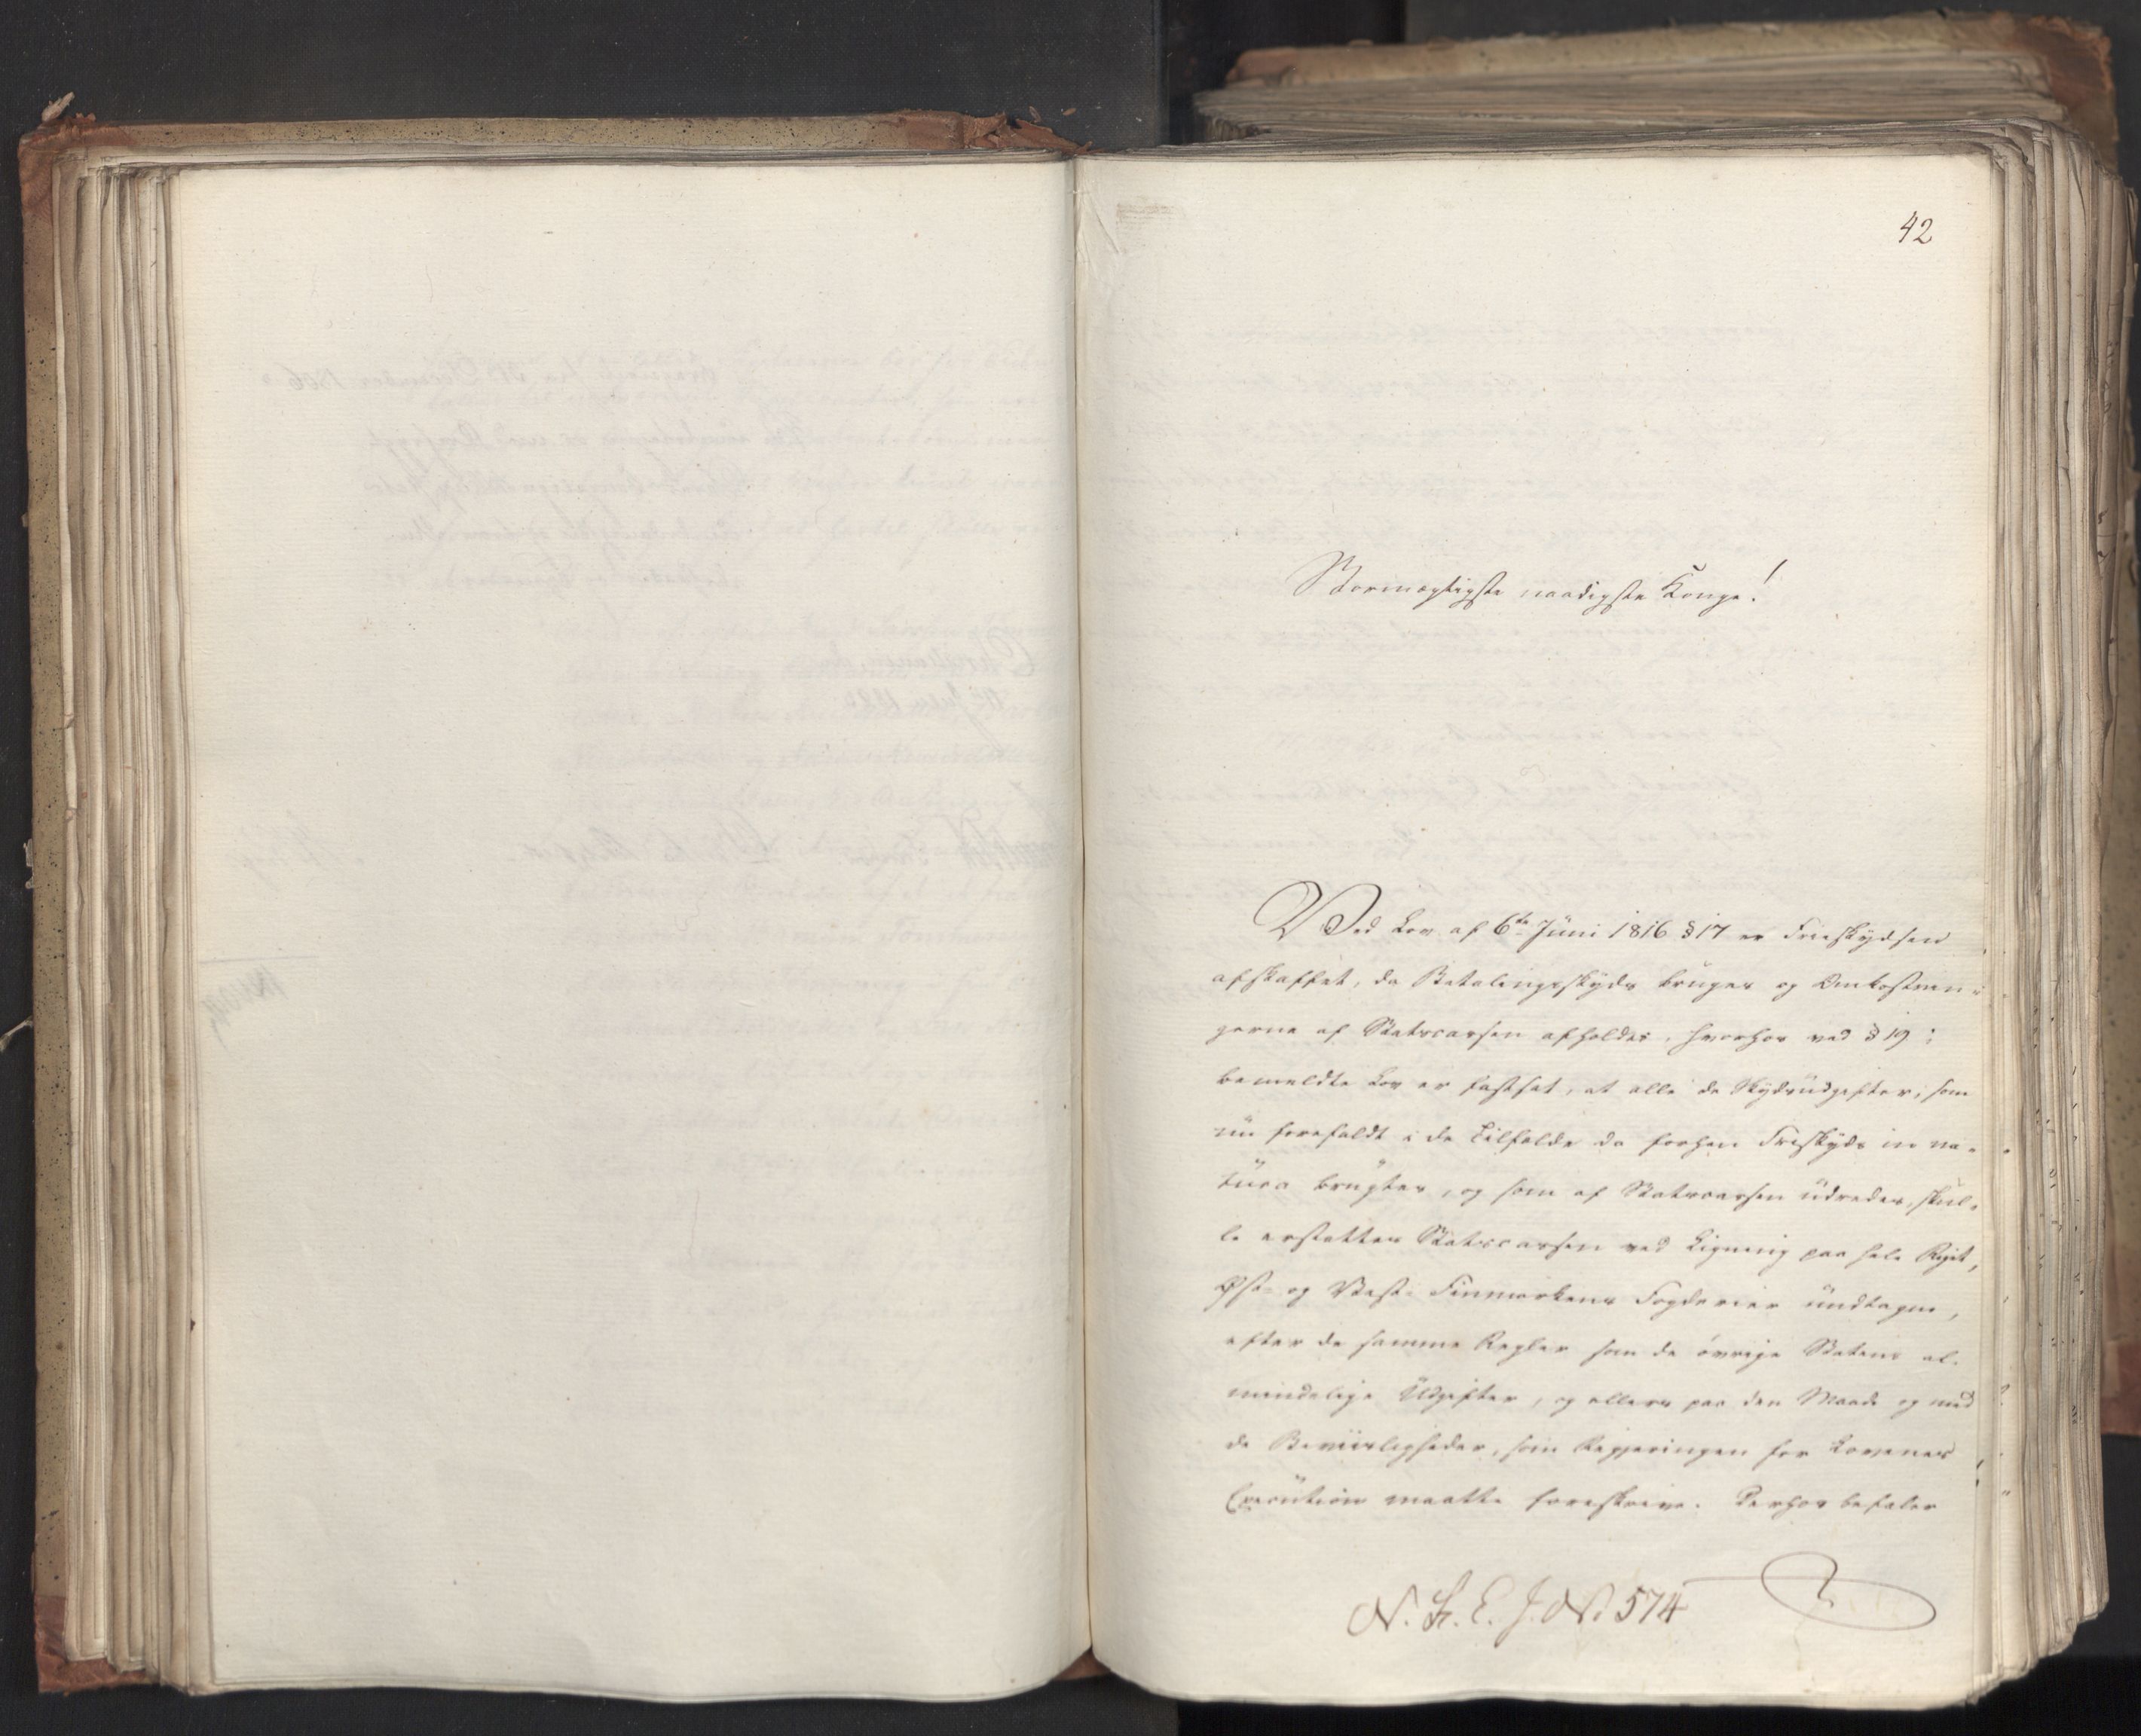 42
Stormægtigste naadigste Konge!
Ved Lov af 6te Juni 1816 § 17 er Frieskydsen
afskaffet, da Betalingsskyds bruges og Omkostnin-
gerne af Statscassen afholdes, hvorhos ved § 19 i
bemeldte Lov er fastsat, at alle de Skydsudgifter, som
nu forefaldt i de Tilfælde da forhen Friskyds in na-
tura brugtes, og som af Statscassen udredes, skul-
le erstattes Statscassen ved Ligning paa hele Riget,
Øst- og Vest-Finmarkens Fogderier undtagne,
efter de samme Regler som de øvrige Statens al-
mindelige Udgifter, og ellers paa den Maade og med
de Beviisligheder, som Regjeringen for Lovenes
Execution maatte foreskrive. Derhos befaler
N. H. E. J. No 574